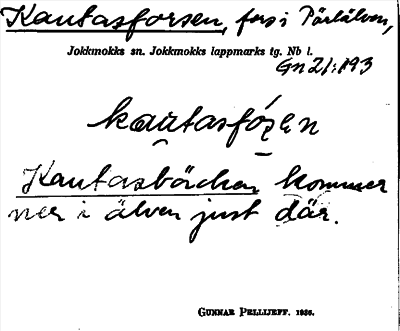 Kautasforsen, fors i Pärlälven,
Jokkmokks sn. Jokkmokks lappmarks tg. Nb l.
Gn 21:193
kautasfórsen
Kautasbäcken kommer
ner i älven just där.
GUNNAR PELLIJEFF. 1936.